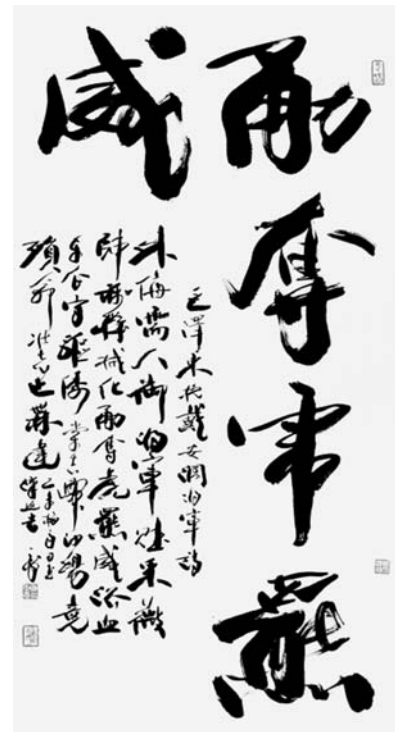 勇奪虎羆
威
毛澤東挽戴安瀾将軍詩
外侮需人御将軍赋采薇
師稱機械化勇奪虎羆威浴血
东瓜守驱倭棠吉歸沙場竟
殞命壮志也無違